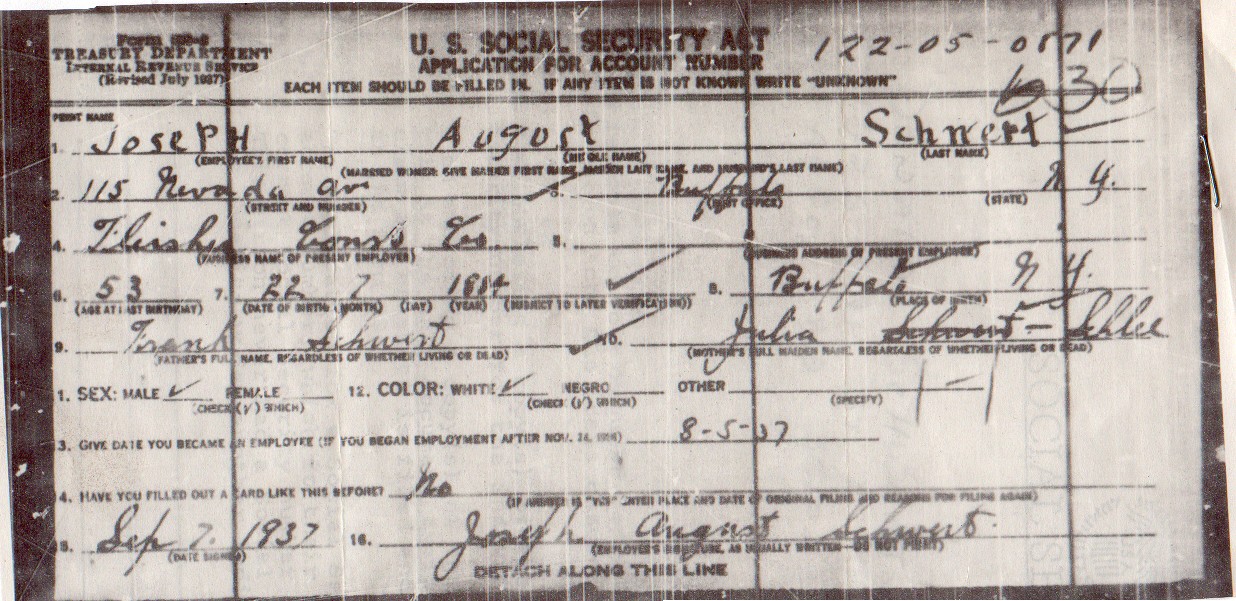 TREASURY DEPARTMENT
INTERNAL REVENUE SERVICE
(Revised July 1937)
U. S. SOCIAL SECURITY ACT
APPLICATION FOR ACCOUNT NUMBER
122-05-0871
EACH ITEM SHOULD BE FILLED IN. IF ANY ITEM IS NOT KNOWN WRITE "UNKNOWN"
630
PRINT NAME
1. JOSEPH August Schwert
(EMPLOYEE'S FIRST NAME) (MIDDLE NAME) (LAST NAME)
(MARRIED WOMEN: GIVE MAIDEN FIRST NAME, MAIDEN LAST NAME, AND HUSBAND'S LAST NAME)
2. 115 Nevada Av 3. Buffalo N Y.
(STREET AND NUMBER) (POST OFFICE) (STATE)
4. Const Co. 5.
(BUSINESS NAME OF PRESENT EMPLOYER) (BUSINESS ADDRESS OF PRESENT EMPLOYER)
6. 53 7. 22 7 1884 8. Buffalo N Y.
(AGE AT LAST BIRTHDAY) (DATE OF BIRTH: (MONTH) (DAY) (YEAR) (SUBJECT TO LATER VERIFICATION)) (PLACE OF BIRTH)
9. Frank Schwert 10. Julia Schwert - Schlee
(FATHER'S FULL NAME, REGARDLESS OF WHETHER LIVING OR DEAD) (MOTHER'S FULL MAIDEN NAME, REGARDLESS OF WHETHER LIVING OR DEAD)
1. SEX: MALE ✓ FEMALE 12. COLOR: WHITE ✓ NEGRO OTHER
(CHECK (√) WHICH) (CHECK (√) WHICH) (SPECIFY)
3. GIVE DATE YOU BECAME AN EMPLOYEE (IF YOU BEGAN EMPLOYMENT AFTER NOV. 24, 1936) 8-5-37
4. HAVE YOU FILLED OUT A CARD LIKE THIS BEFORE? No
(IF ANSWER IS "YES" ENTER PLACE AND DATE OF ORIGINAL FILING AND REASONS FOR FILING AGAIN)
5. Sep 7. 1937 16. Joseph August Schwert.
(DATE SIGNED) (EMPLOYEE'S SIGNATURE, AS USUALLY WRITTEN—DO NOT PRINT)
DETACH ALONG THIS LINE